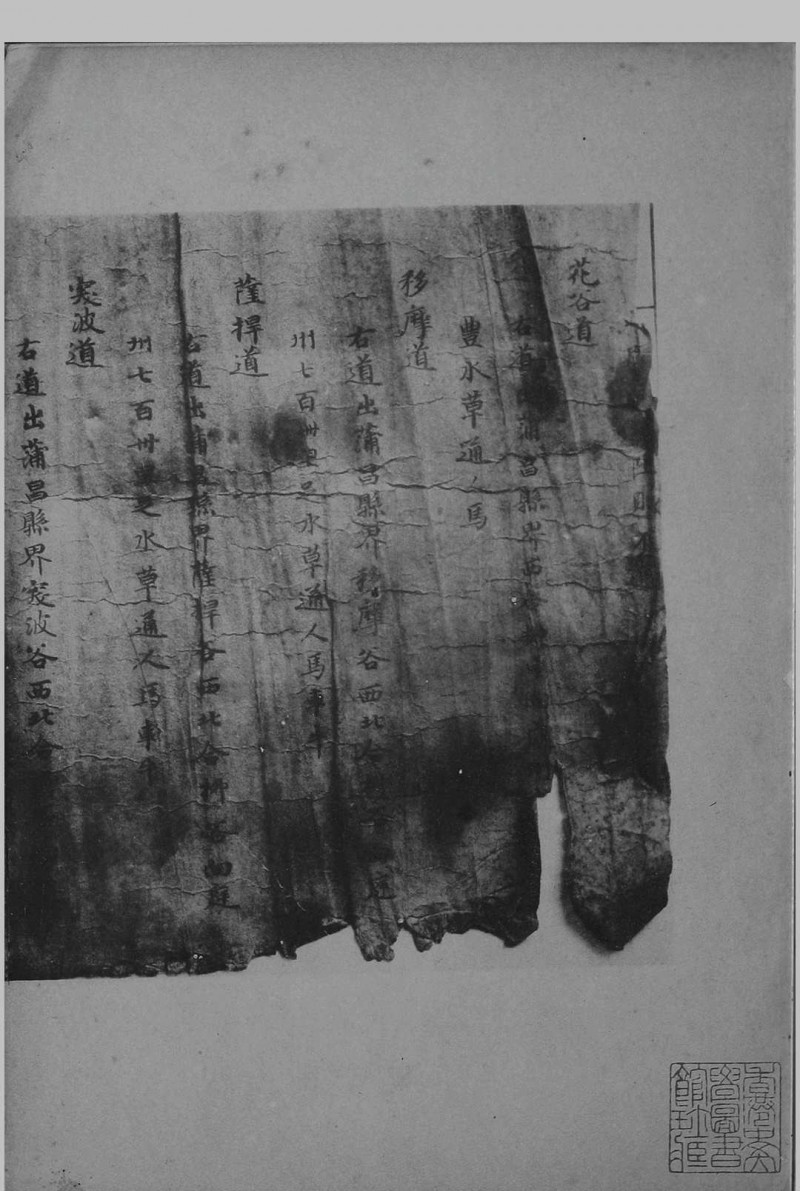 花谷道
右道出蒲昌縣界西合
豐水草通人馬
移摩道
右道出蒲昌縣界移摩谷西北合柳谷向庭
州七百卌里足水草通人馬車牛
薩捍道
右道出蒲昌縣界薩捍谷西北合柳谷向庭
州七百卅里足水草通人馬車牛
突波道
右道出蒲昌縣界突波谷西北合
學圖書
館珍藏